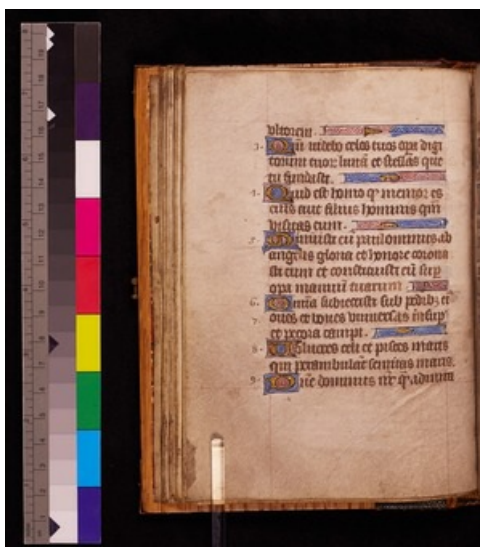 vltorem.
3. Qm̄ videbo celos tuos opa digi
torum tuor lunā et stellas que
tu fundasti.
4. Quid est homo qr memor es
eius aut filius hominis qm̄
visitas eum.
5. Minuisti eū paulominus ab
angelis gloria et honore corona
sti eum et constituisti eū sup
opa manuū tuarum
6. Omnia subiecisti sub pedibz eius
7. oues et boues vniuersas insup
et pecora campi.
8. Volucres celi et pisces maris
qui perambulāt semitas maris.
9. Dn̄e dominus nr̄